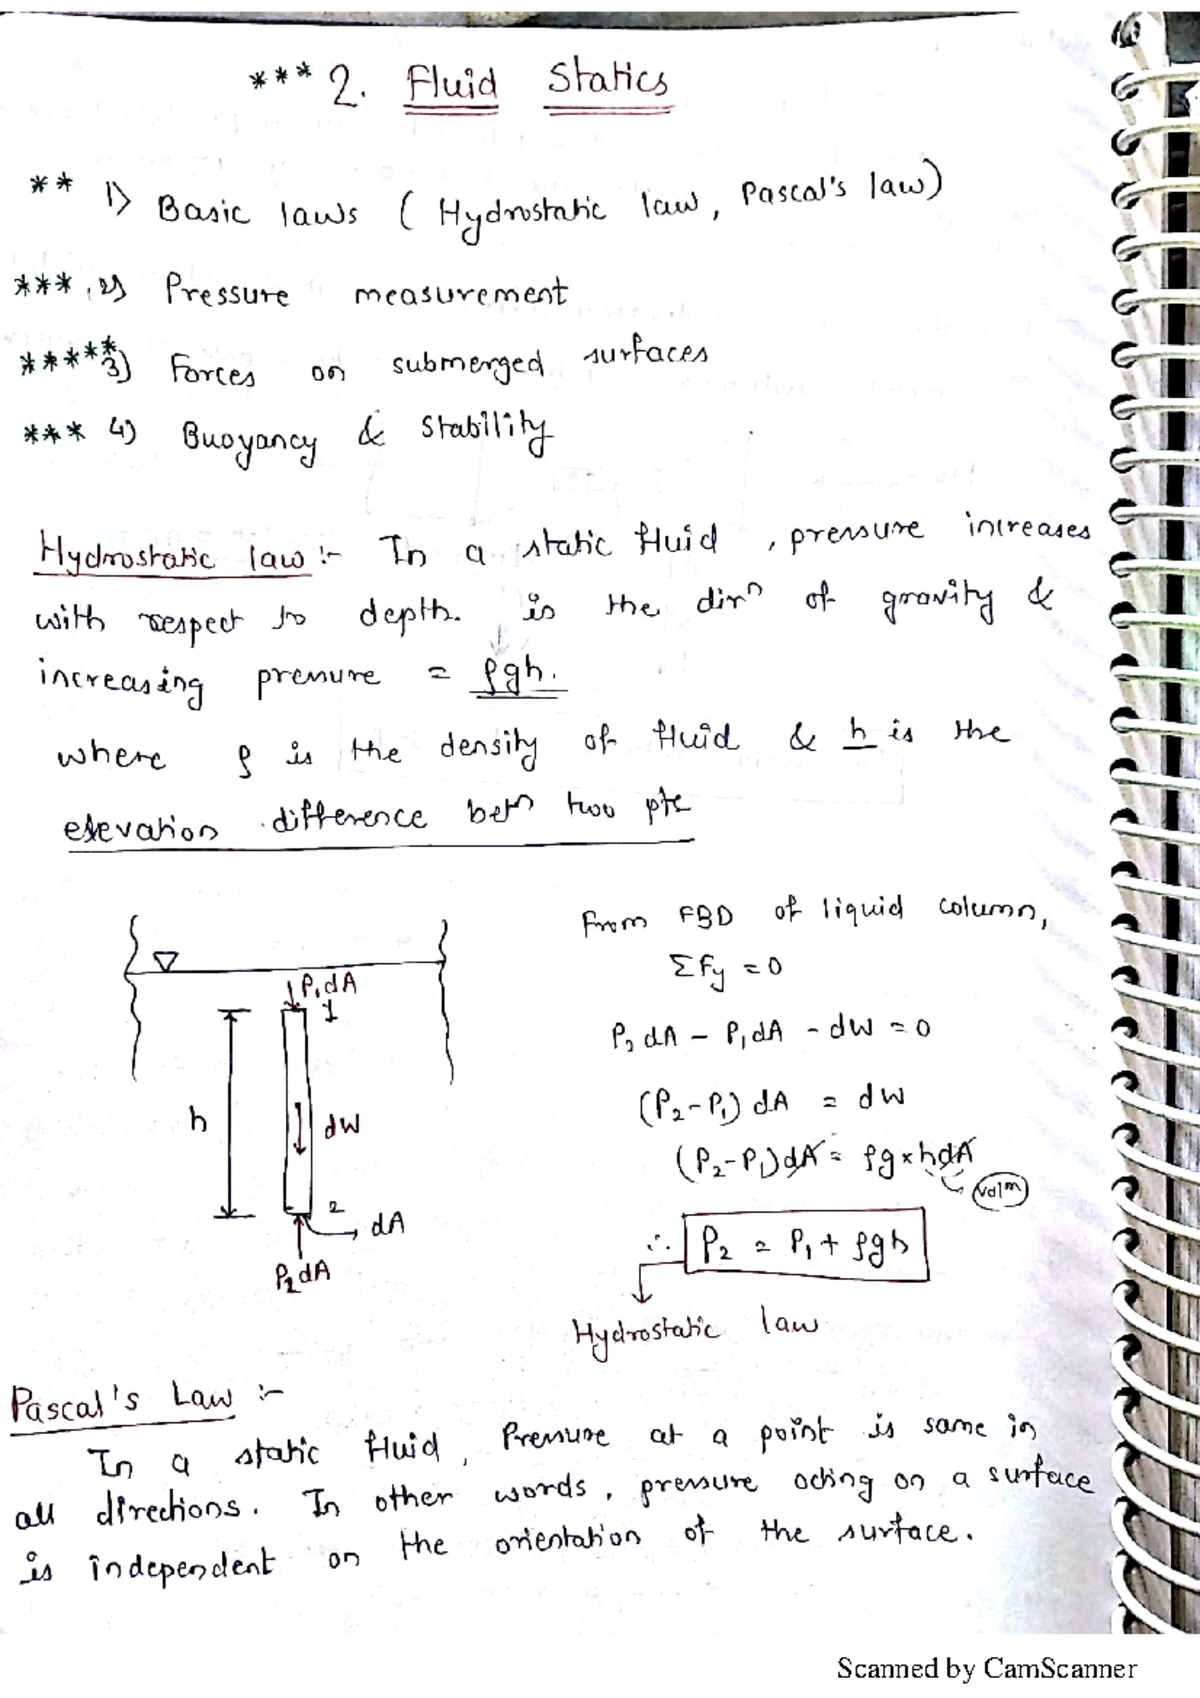 *** 2. Fluid Statics
** 1) Basic laws ( Hydrostatic law, Pascal's law)
*** 2) Pressure measurement
***** 3) Forces on submerged surfaces
*** 4) Buoyancy & Stability
Hydrostatic law :- In a static fluid, pressure increases
with respect to depth. is the dirⁿ of gravity &
increasing pressure = ρgh.
where ρ is the density of fluid & h is the
elevation difference betⁿ two pts
From FBD of liquid column,
ΣFy = 0
P₂dA - P₁dA - dW = 0
(P₂-P₁) dA = dW
(P₂-P₁)dA = ρg×hdA
volᵐ
∴ P₂ = P₁ + ρgh
Hydrostatic law
P₁dA
1
h
dW
2
dA
P₂dA
Pascal's Law :-
In a static fluid, Pressure at a point is same in
all directions. In other words, pressure acting on a surface
is independent on the orientation of the surface.
Scanned by CamScanner